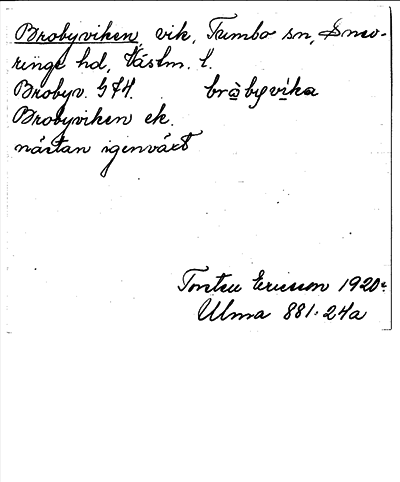 Brobyviken vik, Tumbo sn, Snev-
ringe hd, Västm. l.
Brobyv. G74. bròbyvíka
Brobyviken ek.
nästan igenväxt
Torsten Ericsson 1920
Ulma 881:24a